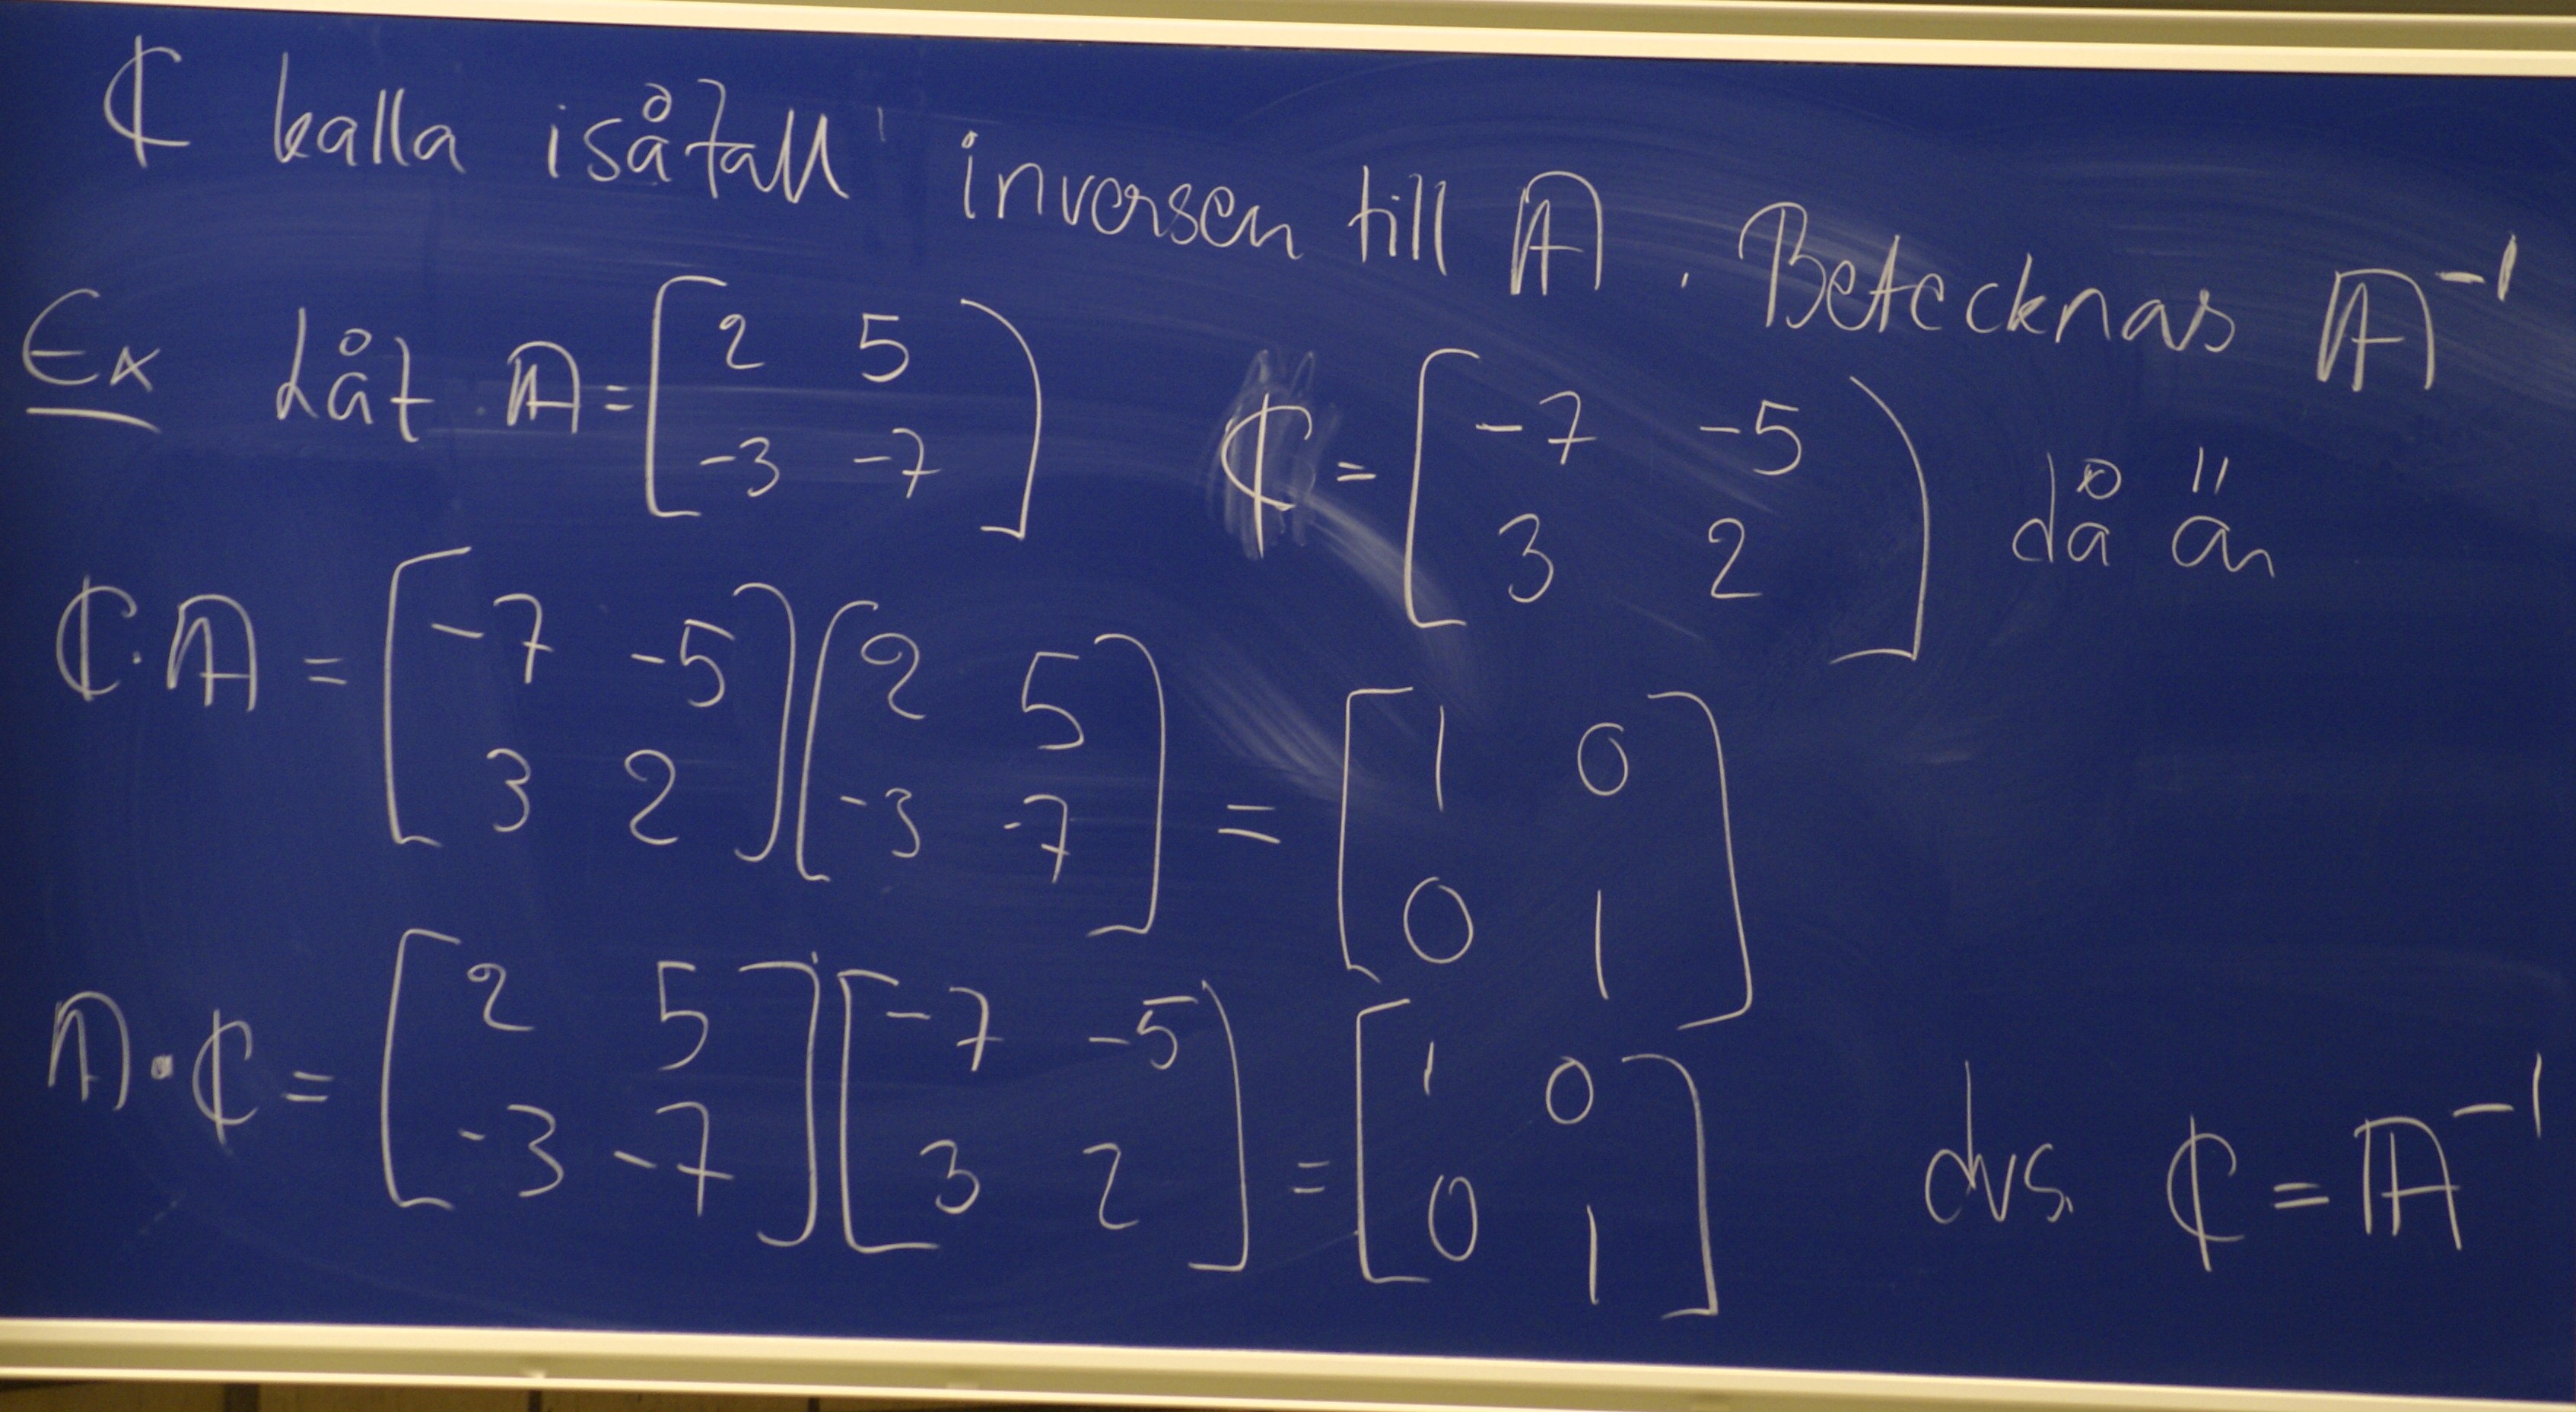 ℂ kalla isåfall inversen till 𝔸. Betecknas 𝔸⁻¹
Ex Låt 𝔸 = [2 5; -3 -7] ℂ = [-7 -5; 3 2] då är
ℂ·𝔸 = [-7 -5; 3 2][2 5; -3 -7] = [1 0; 0 1]
𝔸·ℂ = [2 5; -3 -7][-7 -5; 3 2] = [1 0; 0 1] dvs. ℂ = 𝔸⁻¹